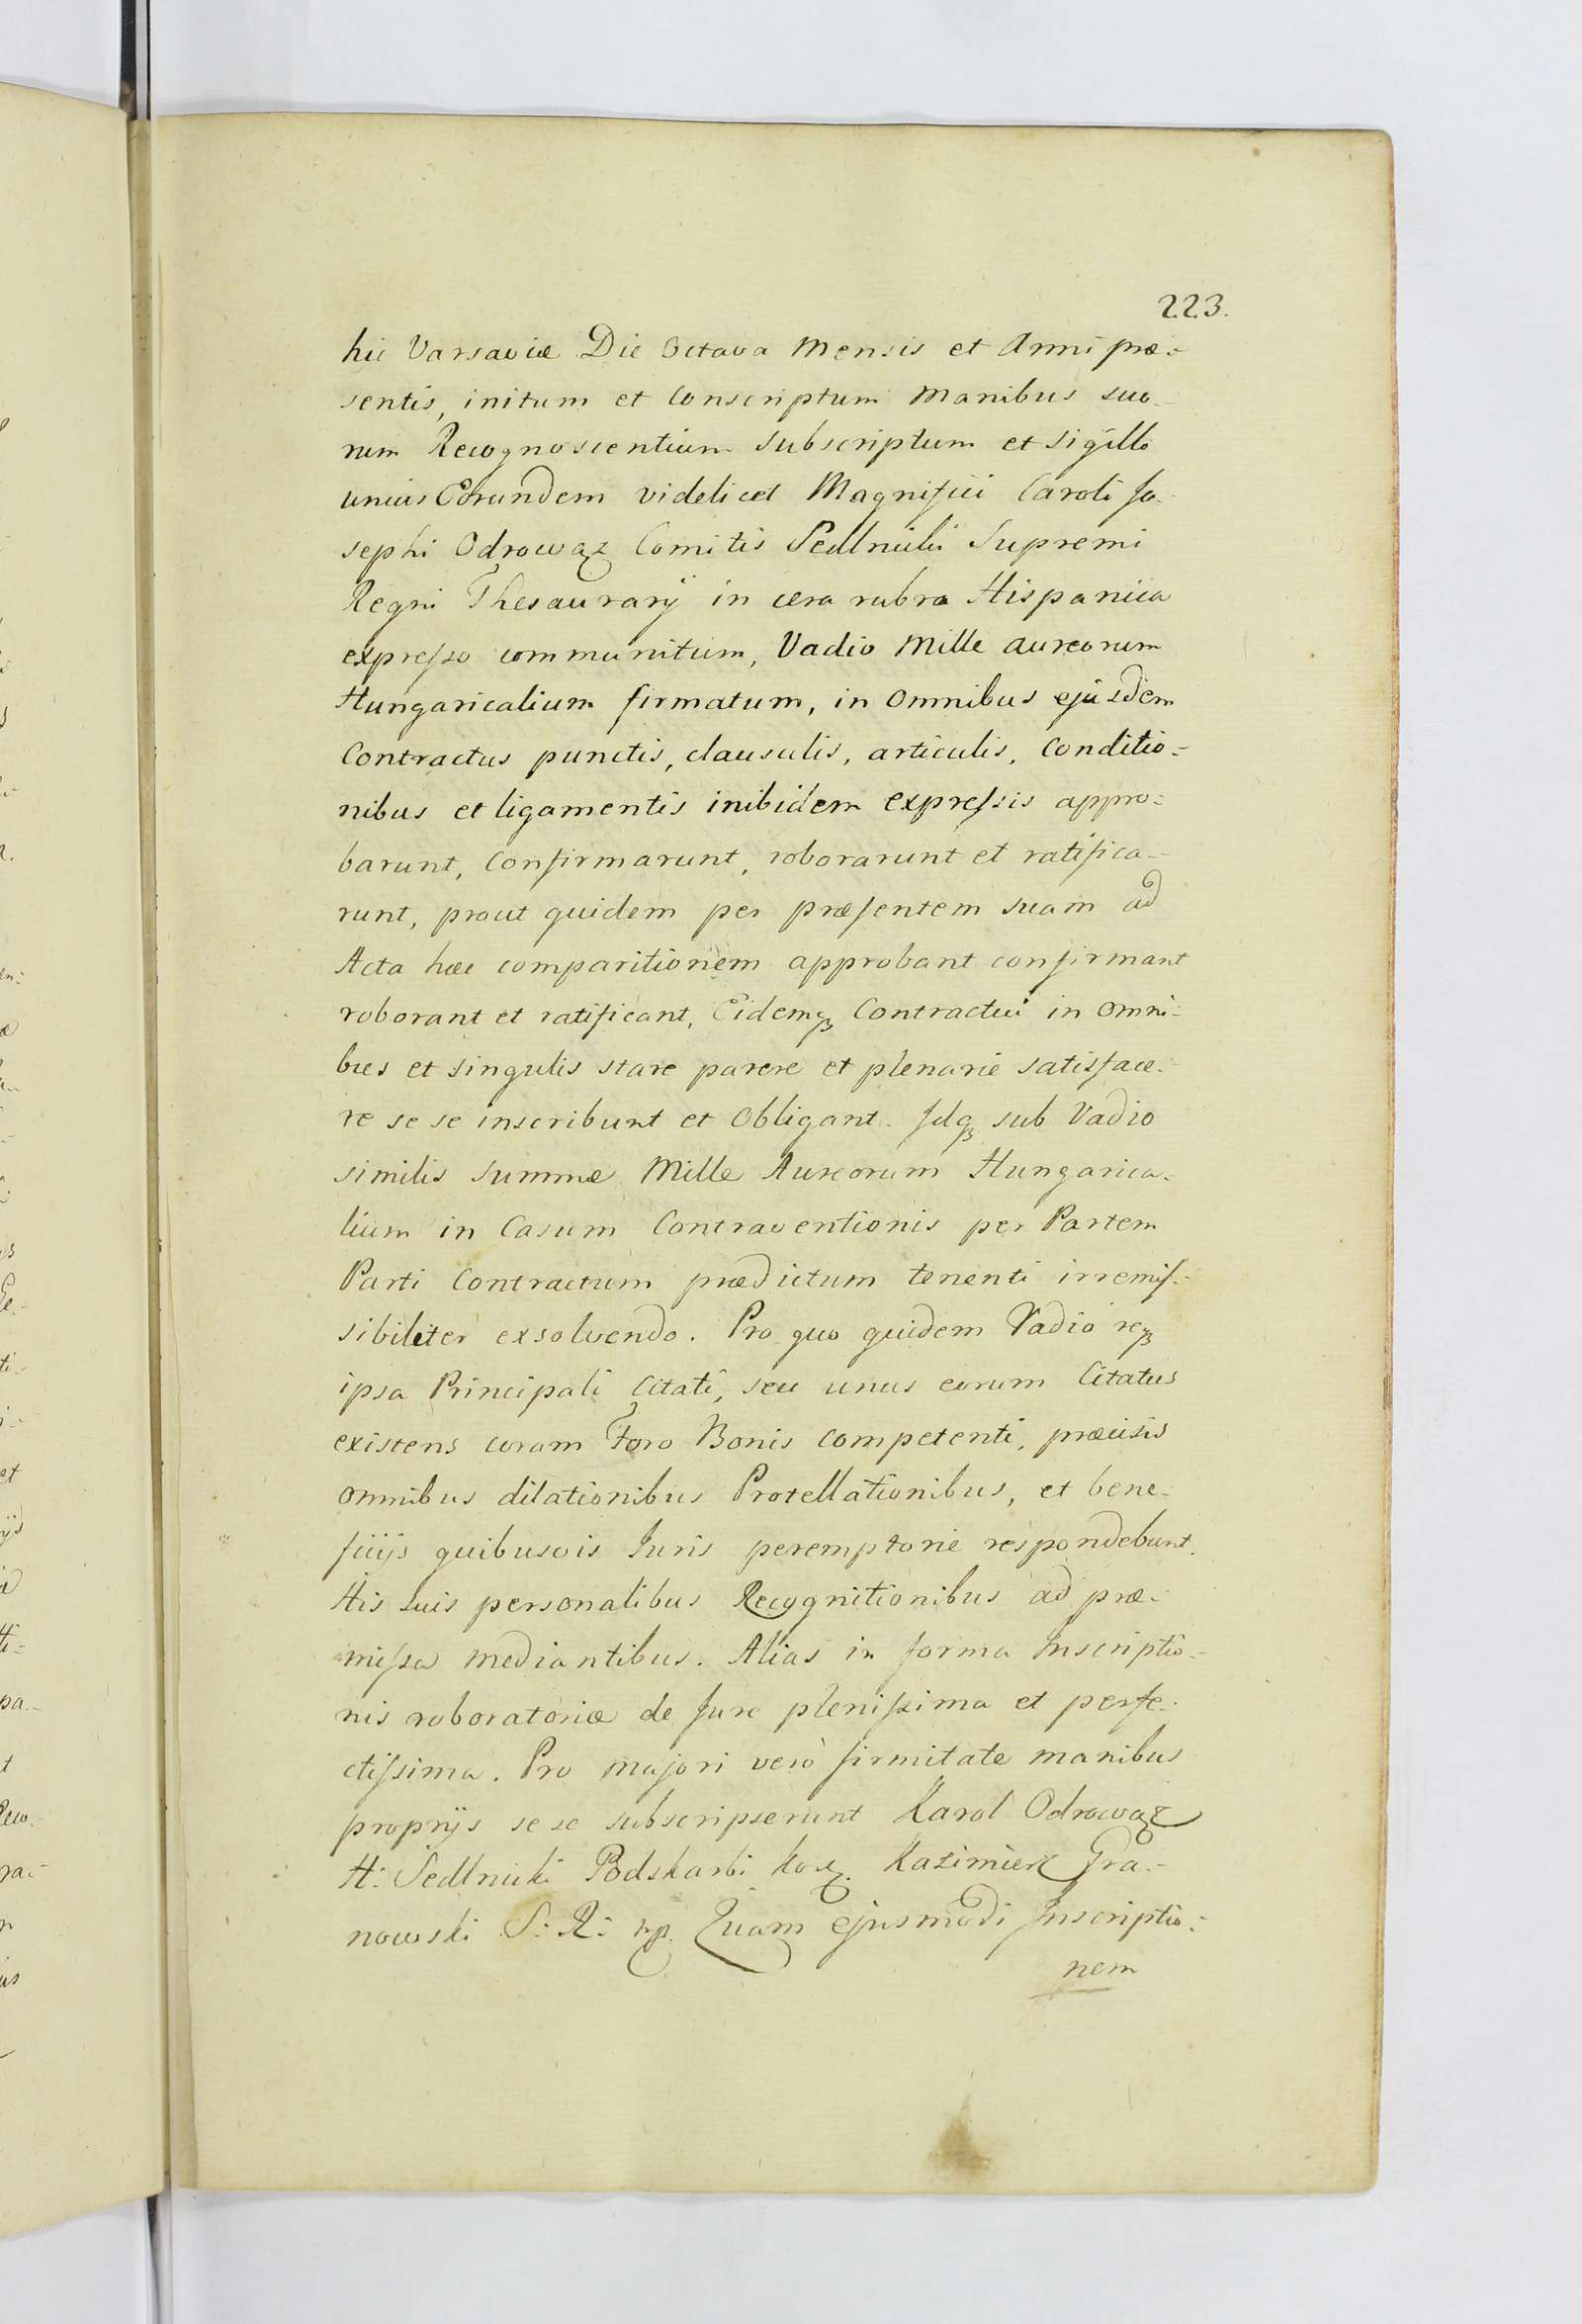 223.
hic Varsaviæ Die Octava Mensis et Anni præ=
sentis, initum et Conscriptum Manibus suo-
rum Recognoscentium Subscriptum et sigillo
unius Eorundem videlicet Magnifici Caroli Jo-
sephi Odrowąz Comitis Sedlnicki Supremi
Regni Thesaurarij in cera rubra Hispanica
expreſso communitum, Vadio Mille aureorum
Hungaricalium firmatum, in omnibus ejusdem
Contractus punctis, clausulis, articulis, Conditio=
nibus et ligamentis inibidem expreſsis appro=
barunt, Confirmarunt, roborarunt et ratifica-
runt, prout quidem per præsentem suam ad
Acta hæc comparitionem approbant confirmant
roborant et ratificant, Eidemq Contractui in omni-
bus et singulis stare parere et plenarie satisface-
re se se inscribunt et Obligant. Idq sub Vadio
similis Summæ Mille Aureorum Hungarica-
lium in Casum Contraventionis per Partem
Parti Contractum prædictum tenenti irremiſ-
sibiliter exsolvendo. Pro quo quidem Vadio req
ipsa Principali Citati, seu unus eorum Citatus
existens coram Foro Bonis competenti, præcisis
omnibus dilationibus Protellationibus, et bene-
ficijs quibusvis Juris peremptorie respondebunt.
His suis personalibus Recognitionibus ad præ-
miſsa mediantibus. Alias in forma Inscriptio-
nis roboratoriæ de Jure pleniſsima et perfe-
ctiſsima. Pro majori verò firmitate manibus
proprijs se se subscripserunt Karol Odrowąz
H: Sedlnicki Podskarbi Kor. Kazimierz Gra-
nowski S: R: mp. Quam ejusmodi Inscriptio-
nem